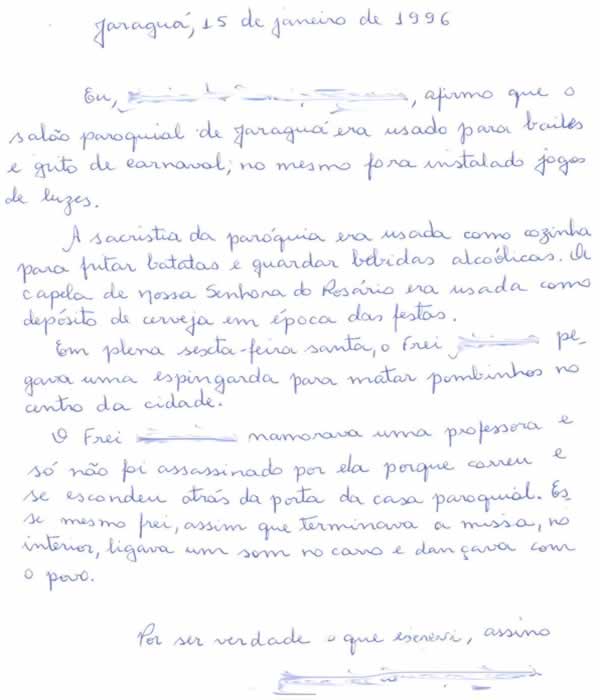 Jaraguá, 15 de janeiro de 1996
Eu, , afirmo que o
salão paroquial de Jaraguá era usado para bailes
e grito de carnaval; no mesmo fora instalado jogos
de luzes.
A sacristia da paróquia era usada como cozinha
para fritar batatas e guardar bebidas alcoólicas. A
capela de Nossa Senhora do Rosário era usada como
depósito de cerveja em época das festas.
Em plena sexta-feira santa, o Frei pe-
gava uma espingarda para matar pombinhos no
centro da cidade.
O Frei namorava uma professora e
só não foi assassinado por ela porque correu e
se escondeu atrás da porta da casa paroquial. Es
se mesmo frei, assim que terminava a missa, no
interior, ligava um som no carro e dançava com
o povo.
Por ser verdade o que escrevi, assino